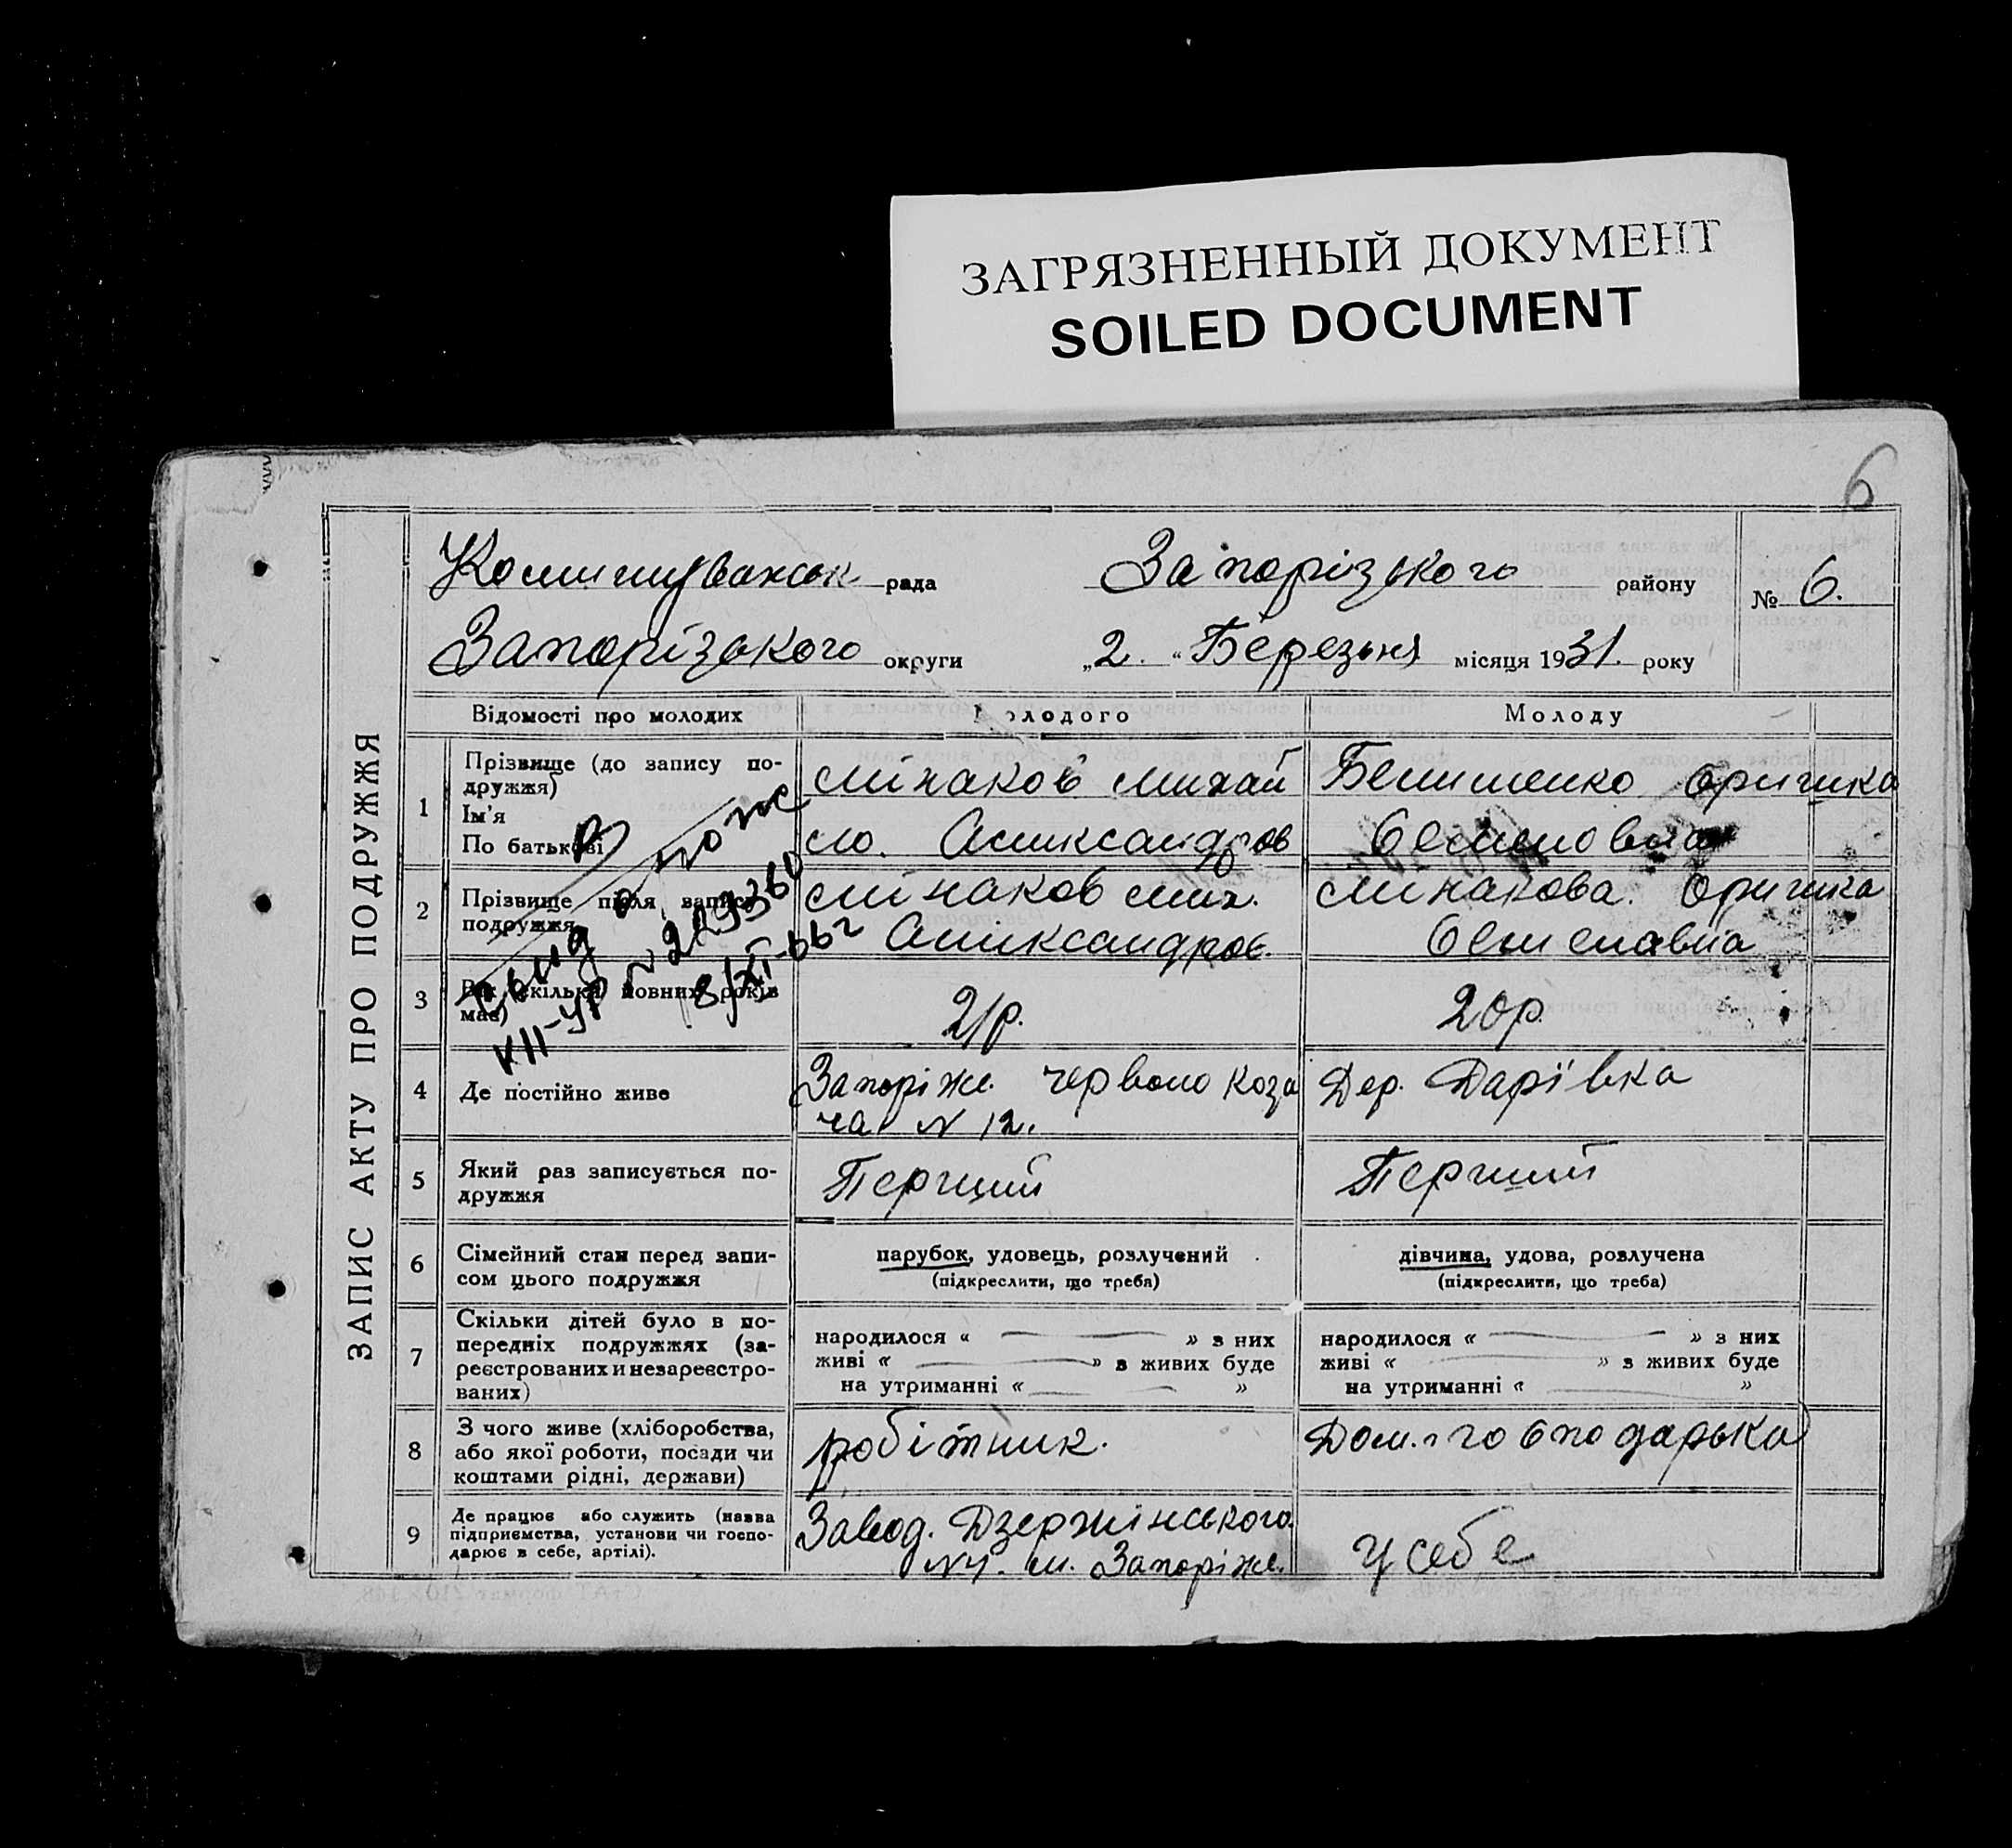 ЗАГРЯЗНЕННЫЙ ДОКУМЕНТ
SOILED DOCUMENT
6
Комишуванськ рада Запорізького району № 6.
Запорізького округи „2.“ Березьня місяця 1931. року
ЗАПИС АКТУ ПРО ПОДРУЖЖЯ
Відомості про молодих Молодого Молоду
1 Прізвище (до запису по-
дружжя)
Ім'я
По батькові
Мінаков Михай
ло. Александров
Оришка
Семеновна
2 Прізвище після запису
подружжя
Мінаков Мих.
Александров.
Мінакова. Оришка
Семеновна
3 Вік (скільки повних років
має)
21р.
20р.
4 Де постійно живе
Запоріжє. Червоно Коза
ча N 12.
Дер. Дарівка
5 Який раз записується по-
дружжя
Перший
Перший
6 Сімейний стан перед запи-
сом цього подружжя
парубок, удовець, розлучений
(підкреслити, що треба)
дівчина, удова, розлучена
(підкреслити, що треба)
7 Скільки дітей було в по-
передніх подружжях (за-
реєстрованих и незареєстро-
ваних)
народилося « » з них
живі « » з живих буде
на утриманні « »
народилося « » з них
живі « » з живих буде
на утриманні « »
8 З чого живе (хліборобства,
або якої роботи, посади чи
коштами рідні, держави)
робітник.
Дом. господарька
9 Де працює або служить (назва
підприємства, установи чи госпо-
дарює в себе, артілі).
Завод. Дзержінського.
м. Запоріжє.
у себе